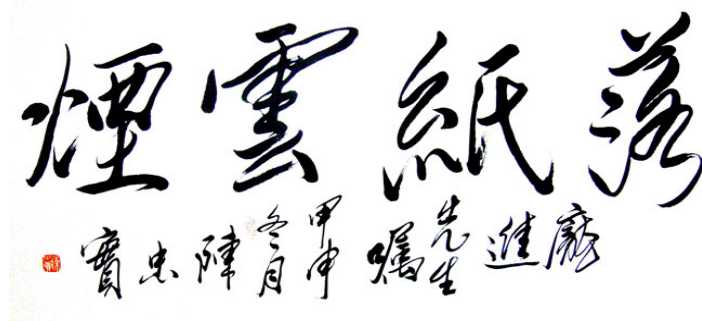 落紙雲煙
龐進先生囑甲申冬月陳忠實